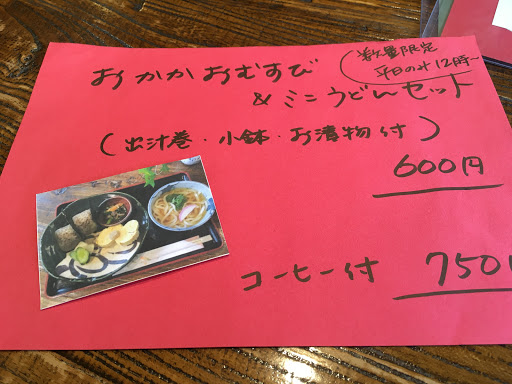 数量限定
平日のみ12時〜
おかかおむすび
&ミニうどんセット
(出汁巻・小鉢・お漬物付)
600円
コーヒー付 750円